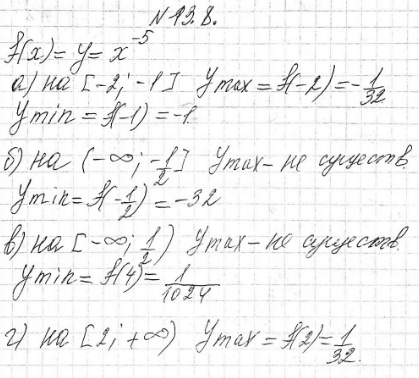 N 13.8.
f(x)= y= x^-5
а) на [-2; -1] ymax = f(-2)= -1/32
ymin = f(-1) = -1
б) на (-∞; -1/2] ymax - не существ.
ymin = f(-1/2) = -32
в) на [-∞; 1/2) ymax - не существ.
ymin = f(4) = 1/1024
г) на [2; +∞) ymax = f(2) = 1/32.